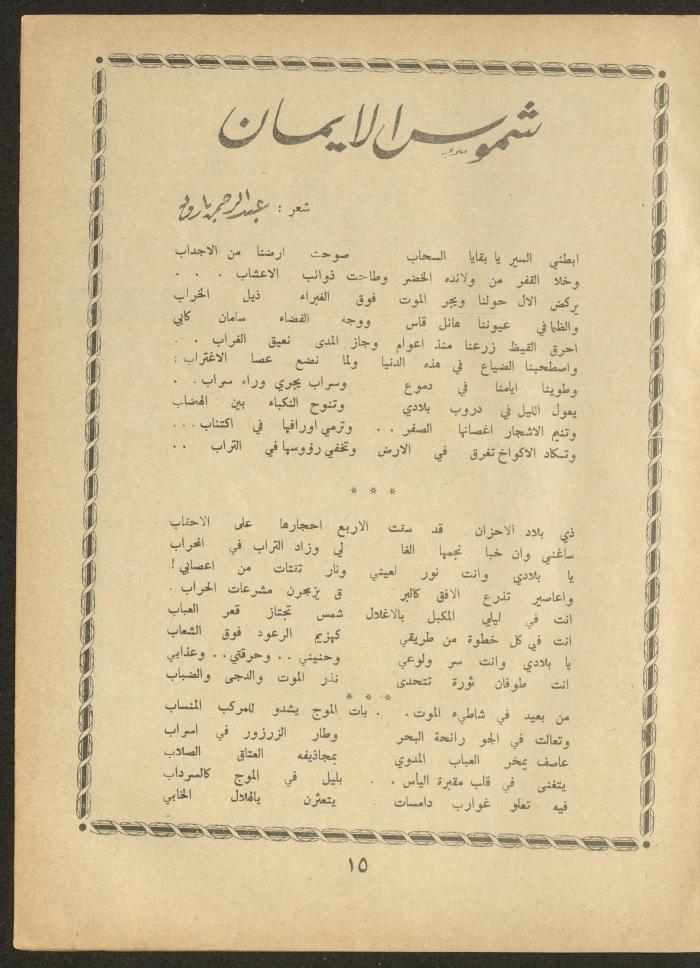 شموس الايمان
شعر : عبد الرحمن بارود
ابطئي السير يا بقايا السحاب صوحت ارضنا من الاجداب
وخلا القفر من ولائده الخضر وطاحت ذوائب الاعشاب . . .
يركض الال حولنا ويجر الموت فوق الغبراء ذيل الخراب
والظما في عيوننا هائل قاس ووجه الفضاء سامان كابي
احرق القيظ زرعنا منذ اعوام وجاز المدى نعيق الغراب . .
واصطحبنا الضياع في هذه الدنيا ولما نضع عصا الاغتراب :
وطوينا ايامنا في دموع وسراب يجري وراء سراب . .
يعول الليل في دروب بلادي وتنوح النكباء بين الهضاب
وتنيم الاشجار اغصانها الصفر . . وترمي اوراقها في اكتئاب . . .
وتكاد الاكواخ تغرق في الارض وتخفي رؤوسها في التراب . .
* * *
ذي بلاد الاحزان قد سفت الاربع احجارها على الاحقاب
ساغني وان خبا نجمها الغا لي وزاد التراب في المحراب
يا بلادي وانت نور لعيني ونار تفتات من اعصابي !
واعاصير تذرع الافق كالبر ق يزمجرن مشرعات الحراب .
انت في ليلي المكبل بالاغلال شمس تجتاز قعر العباب
انت في كل خطوة من طريقي كهزيم الرعود فوق الشعاب
يا بلادي وانت سر ولوعي وحنيني . . وحرقتي . . وعذابي
انت طوفان ثورة تتحدى نذر الموت والدجى والضباب
* * *
من بعيد في شاطيء الموت . . بات الموج يشدو للمركب المنساب
وتعالت في الجو رائحة البحر وطار الزرزور في اسراب
عاصف يمخر العباب المدوي بمجاذيفه العتاق الصلاب
يتغنى في قلب مقبرة اليأس . . بليل في الموج كالسرداب
فيه تعلو غوارب دامسات يتعثرن بالهلال الخابي
١٥